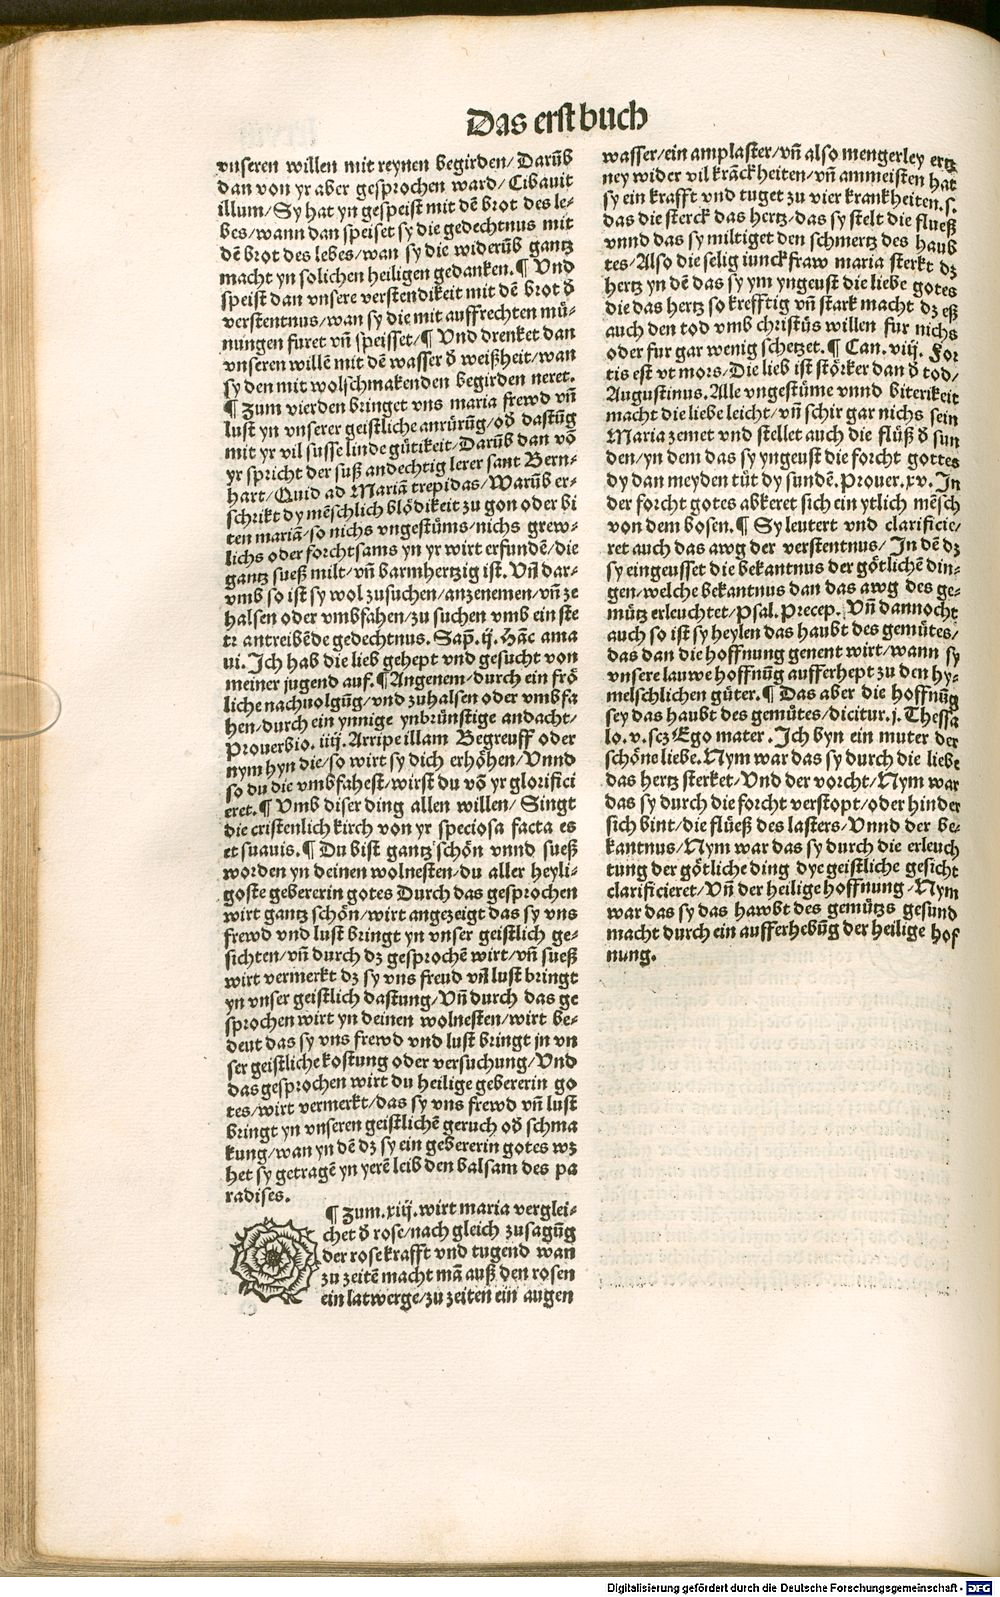 Das erst buch
vnseren willen mit reynen begirden/Darūb
dan von yr aber gesprochen ward/Cibauit
illum/Sy hat yn gespeist mit dē brot des le-
bes/wann dan speiset sy die gedechtnus mit
dē brot des lebēs/wan sy die widerūb gantz
macht yn solichen heiligen gedanken.¶ Vnd
speist dan vnsere verstendikeit mit dē brot ď
verstentnus/wan sy die mit auffrechten mü-
nungen furet vn̄ speisset/¶ Vnd drenket dan
vnseren willē mit dē wasser ď weißheit/wan
sy den mit wolschmakenden begirden neret.
¶ Zum vierden bringet vns maria frewd vn̄
lust yn vnserer geistliche anrürūg/oď dastūg
mit yr vil susse linde gütikeit/Darūb dan vō
yr spricht der suß andechtig lerer sant Bern-
hart/Quid ad Mariā trepidas/Warūb er-
schrikt dy mēschlich blödikeit zu gon oder bi
ten mariā/so nichs vngestüms/nichs grew-
lichs oder forchtsams yn yr wirt erfundē/die
gantz sueß milt/vn̄ barmhertzig ist. Vn̄ dar-
vmb so ist sy wol zusuchen/anzenemen/vn̄ ze
halsen oder vmbfahen/zu suchen vmb ein ste
tz antreibēde gedechtnus. Sap̄. ij. Hāc ama
ui. Ich hab die lieb gehept vnd gesucht von
meiner jugend auf.¶ Angenem/durch ein frö
liche nachuolgūg/vnd zuhalsen oder vmbfa
hen/durch ein ynnige ynbrünstige andacht/
Prouerbio. iiij. Arripe illam Begreuff oder
nym hyn die/so wirt sy dich erhöhen/Vnnd
so du die vmbfahest/wirst du vō yr glorifici
eret.¶ Vmb diser ding allen willen/ Singt
die cristenlich kirch von yr speciosa facta es
et suauis.¶ Du bist gantz schön vnnd sueß
worden yn deinen wolnesten/du aller heyli-
goste gebererin gotes Durch das gesprochen
wirt gantz schön/wirt angezeigt das sy vns
frewd vnd lust bringt yn vnser geistlich ge-
sichten/vn̄ durch dz gesprochē wirt/vn̄ sueß
wirt vermerkt dz sy vns freud vn̄ lust bringt
yn vnser geistlich dastung/Vn̄ durch das ge
sprochen wirt yn deinen wolnesten/wirt be-
deut das sy vns frewd vnd lust bringt in vn
ser geistliche kostung oder versuchung/Vnd
das gesprochen wirt du heilige gebererin go
tes/wirt vermerkt/das sy vns frewd vn̄ lust
bringt yn vnseren geistlichē geruch oď schma
kung/wan yn dē dz sy ein gebererin gotes wz
het sy getragē yn yerē leib den balsam des pa
radises.
¶ Zum. xiij. wirt maria verglei-
chet ď rose/nach gleich zusagūg
der rose krafft vnd tugend wan
zu zeitē macht mā auß den rosen
ein latwerge/zu zeiten ein augen
wasser/ein amplaster/vn̄ also mengerley ertz
ney wider vil kräckheiten/vn̄ ammeisten hat
sy ein krafft vnd tuget zu vier krankheiten. s.
das die sterck das hertz/das sy stelt die flueß
vnnd das sy miltiget den schmertz des haub
tes/Also die selig iunckfraw maria sterkt dz
hertz yn dē das sy ym yngeust die liebe gotes
die das hertz so krefftig vn̄ stark macht dz eß
auch den tod vmb christüs willen fur nichs
oder fur gar wenig schetzet.¶ Can. viij. For
tis est vt mors/Die lieb ist störker dan ď tod/
Augustinus. Alle vngestüme vnnd biterikeit
macht die liebe leicht/vn̄ schir gar nichs sein
Maria zemet vnd stellet auch die flüß ď sun
den/yn dem das sy yngeust die forcht gottes
dy dan meyden tüt dy sundē. Prouer. xv. In
der forcht gotes abkeret sich ein ytlich mēsch
von dem bosen.¶ Sy leutert vnd clarificie/
ret auch das awg der verstentnus/ In dē dz
sy eingeusset die bekantnus der götlichē din-
gen/welche bekantnus dan das awg des ge-
mütz erleuchtet/Psal. Precep. Vn̄ dannocht
auch so ist sy heylen das haubt des gemütes/
das dan die hoffnung genent wirt/wann sy
vnsere lauwe hoffnūg aufferhept zu den hy-
melschlichen güter.¶ Das aber die hoffnūg
sey das haubt des gemütes/dicitur. j. Thessa
lo. v. scz Ego mater. Ich byn ein muter der
schöne liebe. Nym war das sy durch die liebe
das hertz sterket/Vnd der vorcht/Nym war
das sy durch die forcht verstopt/oder hinder
sich bint/die flüeß des lasters/Vnnd der be-
kantnus/Nym war das sy durch die erleuch
tung der götliche ding dye geistliche gesicht
clarificieret/Vn̄ der heilige hoffnung/Nym
war das sy das hawbt des gemützs gesund
macht durch ein aufferhebūg der heilige hof
nung.
Digitalisierung gefördert durch die Deutsche Forschungsgemeinschaft - DFG